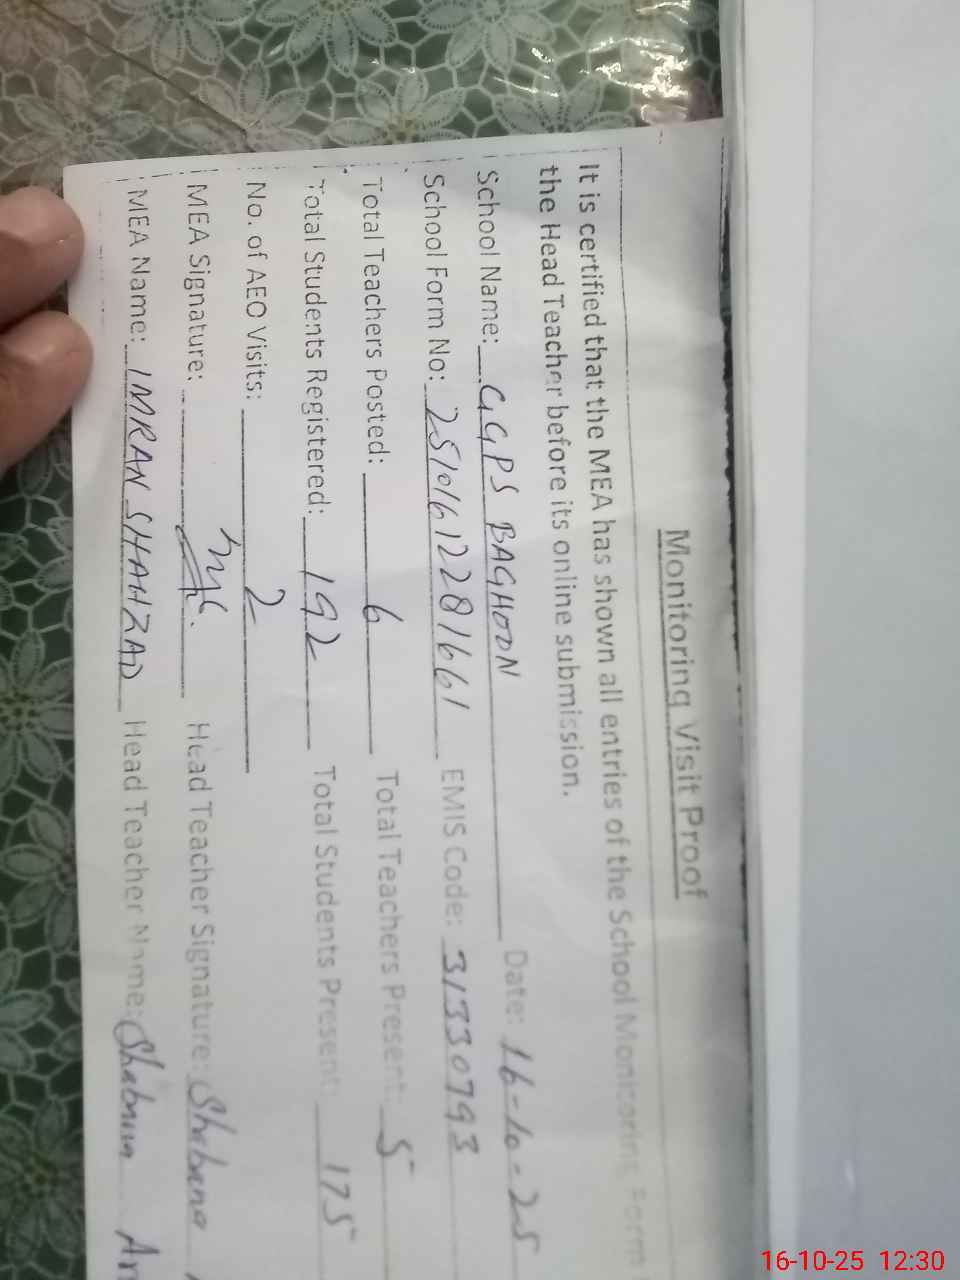 Monitoring Visit Proof
It is certified that the MEA has shown all entries of the School Monitoring Form
the Head Teacher before its online submission.
School Name: GGPS BAGHOON Date: 16-10-25
School Form No: 251016122281661 EMIS Code: 31330793
Total Teachers Posted: 6 Total Teachers Present: 5
Total Students Registered: 192 Total Students Present: 175
No. of AEO Visits: 2
MEA Signature: Head Teacher Signature: Shabana
MEA Name: IMRAN SHAHZAD Head Teacher Name:
16-10-25 12:30